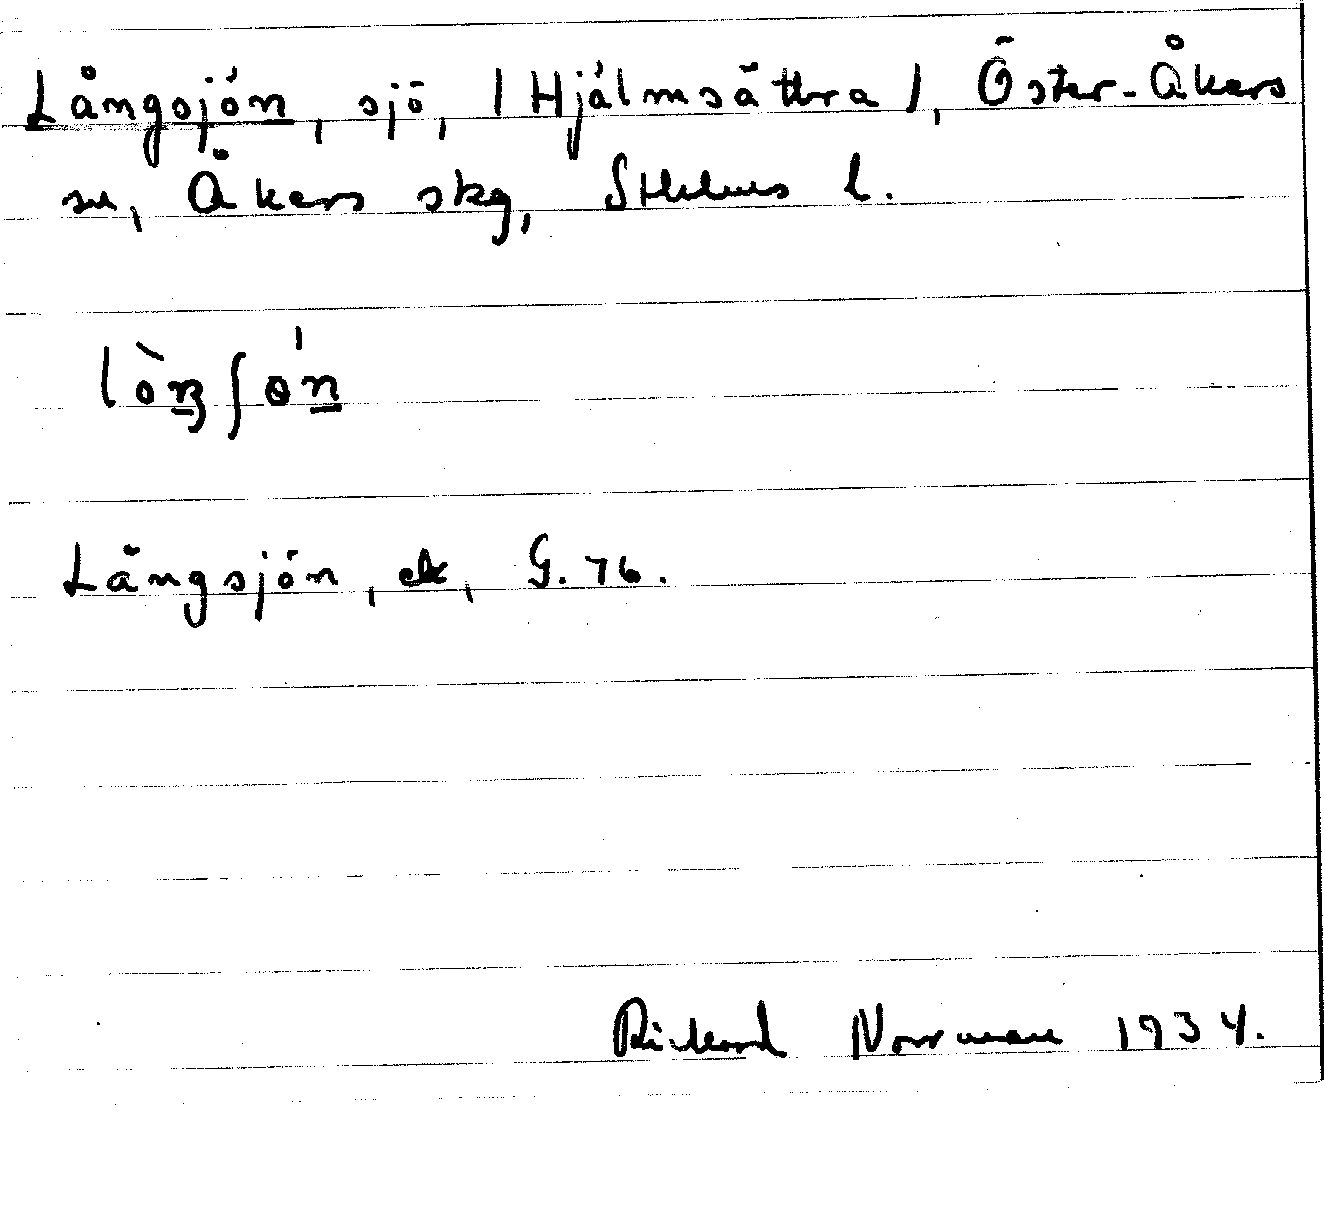 Långsjön, sjö, /Hjälmsättra/, Öster-Åkers
sn, Åkers skg, Sthlms l.
lòŋʃɵ'n
Långsjön, ek, G. 76.
Rickard Norrman 1934.